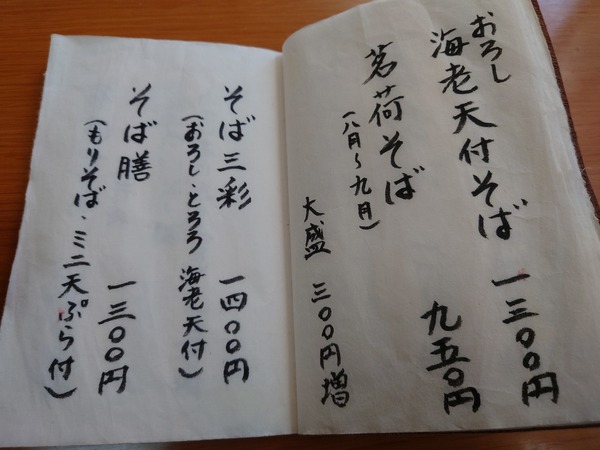 おろし
海老天付そば 一三〇〇円
茗荷そば 九五〇円
(八月~九月)
大盛 三〇〇円増
そば三彩 一四〇〇円
(おろし・とろろ 海老天付)
そば膳 一三〇〇円
(もりそば・ミニ天ぷら付)